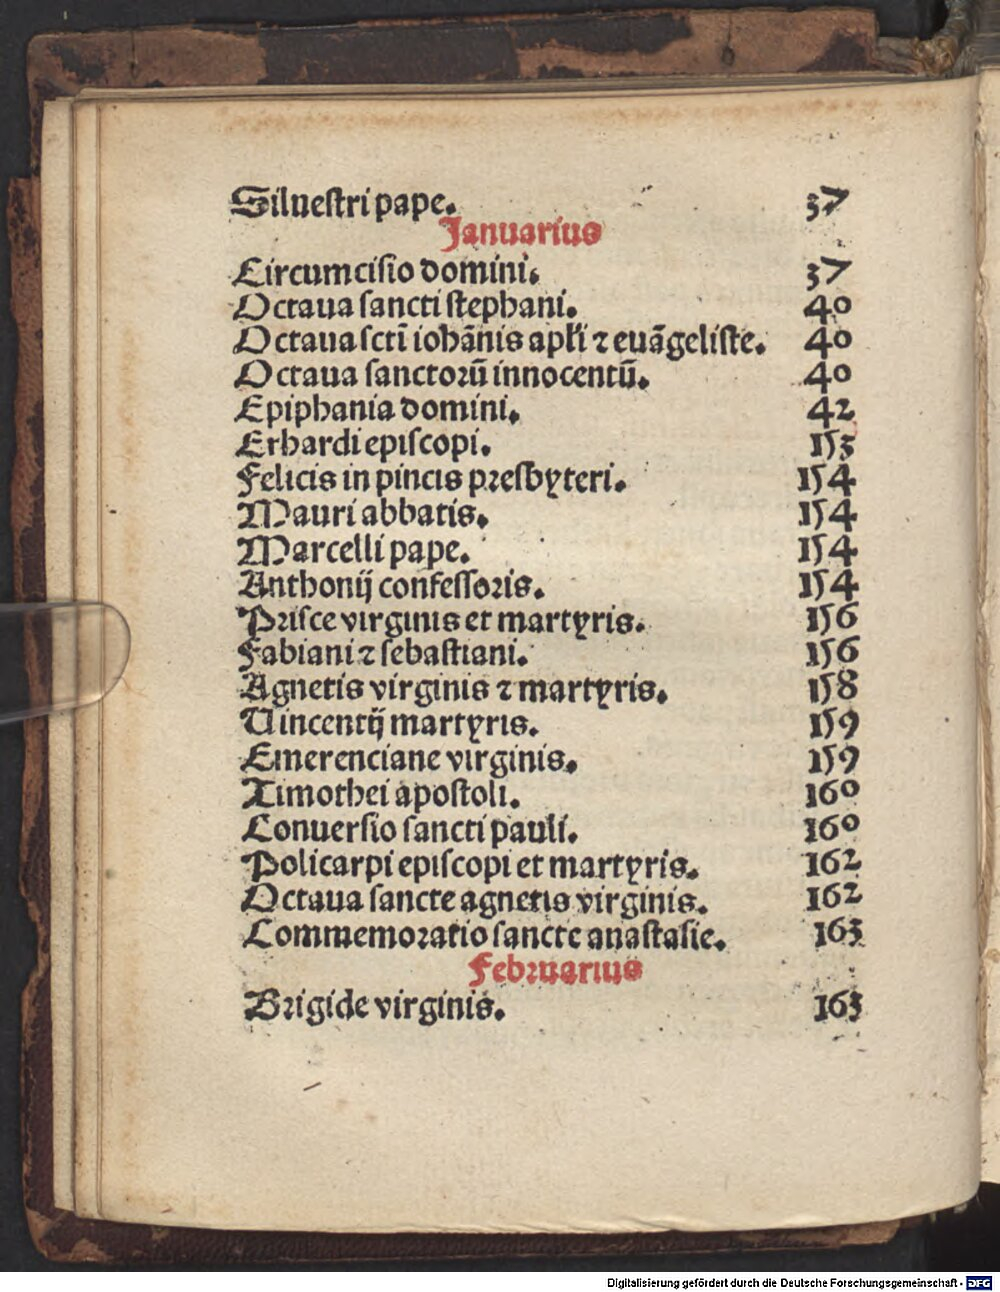 Silueſtri pape. 37
Januarius
Circumciſio domini. 37
Octaua ſancti ſtephani. 40
Octaua ſcti̅ iohan̅is apłi ⁊ eua̅geliſte. 40
Octaua ſanctoꝛu̅ innocentu̅. 40
Epiphania domini. 42
Erhardi epiſcopi. 153
Felicis in pincis pꝛeſbyteri. 154
Mauri abbatis. 154
Marcelli pape. 154
Anthonij confeſſoꝛis. 154
Pꝛiſce virginis et martyris. 156
Fabiani ⁊ ſebaſtiani. 156
Agnetis virginis ⁊ martyris. 158
Uincentij martyris. 159
Emerenciane virginis. 159
Timothei apoſtoli. 160
Conuerſio ſancti pauli. 160
Policarpi epiſcopi et martyris. 162
Octaua ſancte agnetis virginis. 162
Commemoꝛatio ſancte anaſtaſie. 163
Febꝛuarius
Bꝛigide virginis. 163
Digitalisierung gefördert durch die Deutsche Forschungsgemeinschaft - DFG